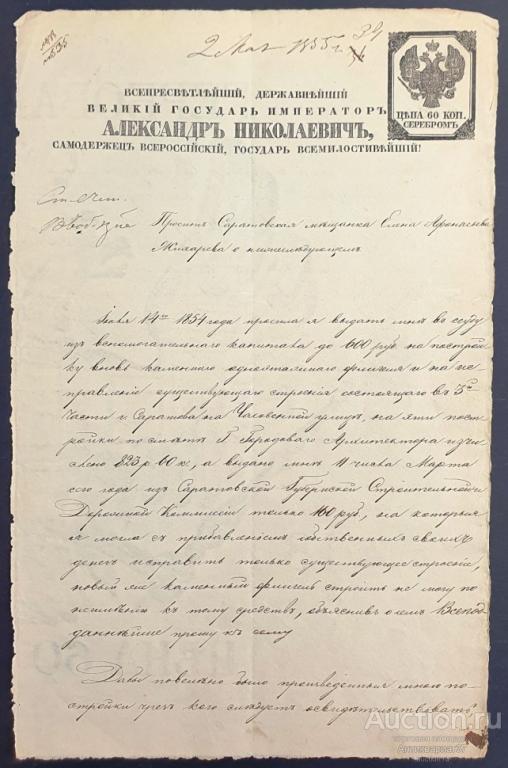 2 Мая 1855 г.
39
ЦѢНА 60 КОП.
СЕРЕБРОМЪ
ВСЕПРЕСВѢТЛѢЙШІЙ, ДЕРЖАВНѢЙШІЙ
ВЕЛИКІЙ ГОСУДАРЬ ИМПЕРАТОРЪ
АЛЕКСАНДРЪ НИКОЛАЕВИЧЪ,
САМОДЕРЖЕЦЪ ВСЕРОССІЙСКІЙ, ГОСУДАРЬ ВСЕМИЛОСТИВѢЙШІЙ!
Проситъ Саратовская мѣщанка Елена Афонасьева
Жихарева о нижеслѣдующемъ
14го 1854 года просила я выдать мнѣ въ ссуду
изъ вспомогательнаго капитала до 600 руб. на построй
ку вновь каменнаго одноэтажнаго флигеля и на ис
правленіе существующаго строенія состоящаго въ 3й
части г. Саратова на Часовенной улицѣ, на эти пост
ройки по смѣтѣ Г. Городоваго Архитектора исчи
слено 823 р. 60 к., а выдано мнѣ 11 числа Марта
сего года изъ Саратовской Губернской Строительной и
Дорожной Коммисіи только 160 руб, на которыя
я могла съ прибавленіемъ собственныхъ своихъ
денегъ исправить только существующее строеніе,
новый же каменный флигель строить не могу по
неимѣнію къ тому средствъ, объяснивъ о семъ Всепод
даннѣйше прошу къ сему
Дабы повелѣно было произведенныя мною по-
стройки чрезъ кого слѣдуетъ освидѣтельствовать
Auction.ru